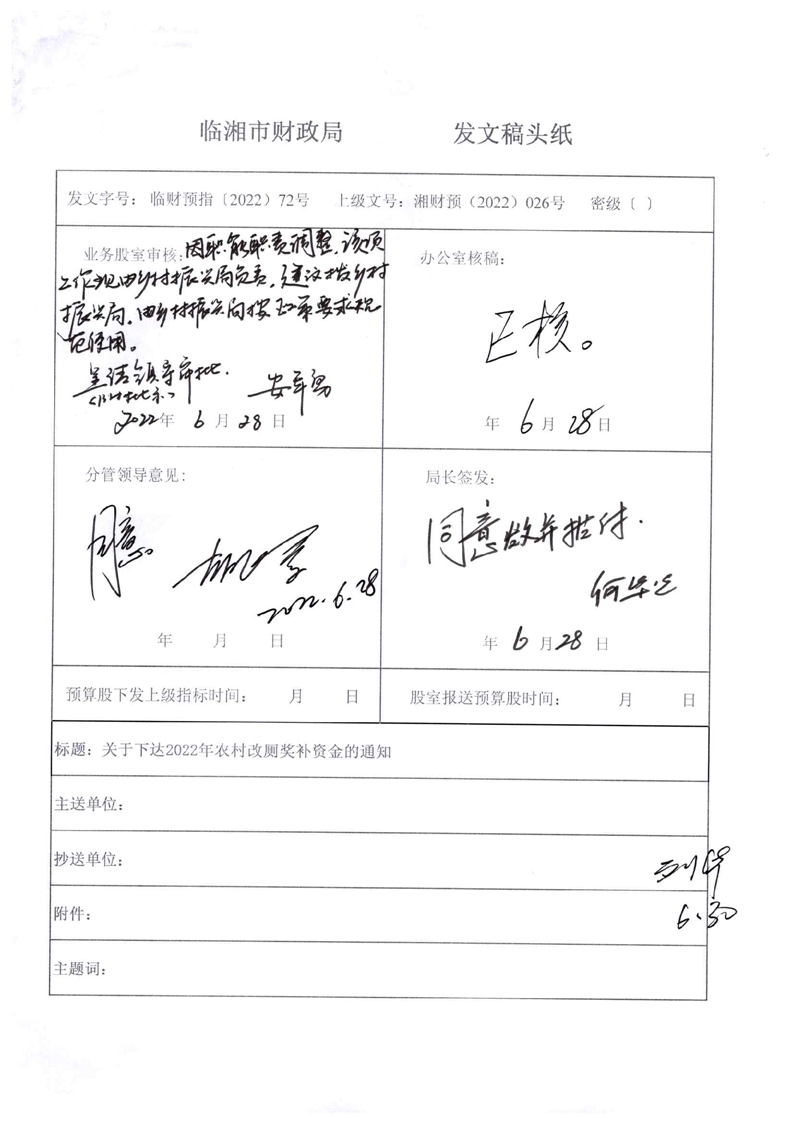 临湘市财政局 发文稿头纸
发文字号：临财预指〔2022〕72号 上级文号：湘财预（2022）026号 密级〔 〕
业务股室审核：因职能职责调整，该项
工作现由乡村振兴局负责，建议拨乡村
振兴局，由乡村振兴局按政策要求规
范使用。
呈请领导审批.
2022年 6月28日
办公室核稿：
已核。
年 6月28日
分管领导意见：
同意
2022.6.28
年 月 日
局长签发：
同意 并拨付.
年 6月28日
预算股下发上级指标时间： 月 日
股室报送预算股时间： 月 日
标题：关于下达2022年农村改厕奖补资金的通知
主送单位：
抄送单位：
附件：
6.30
主题词：